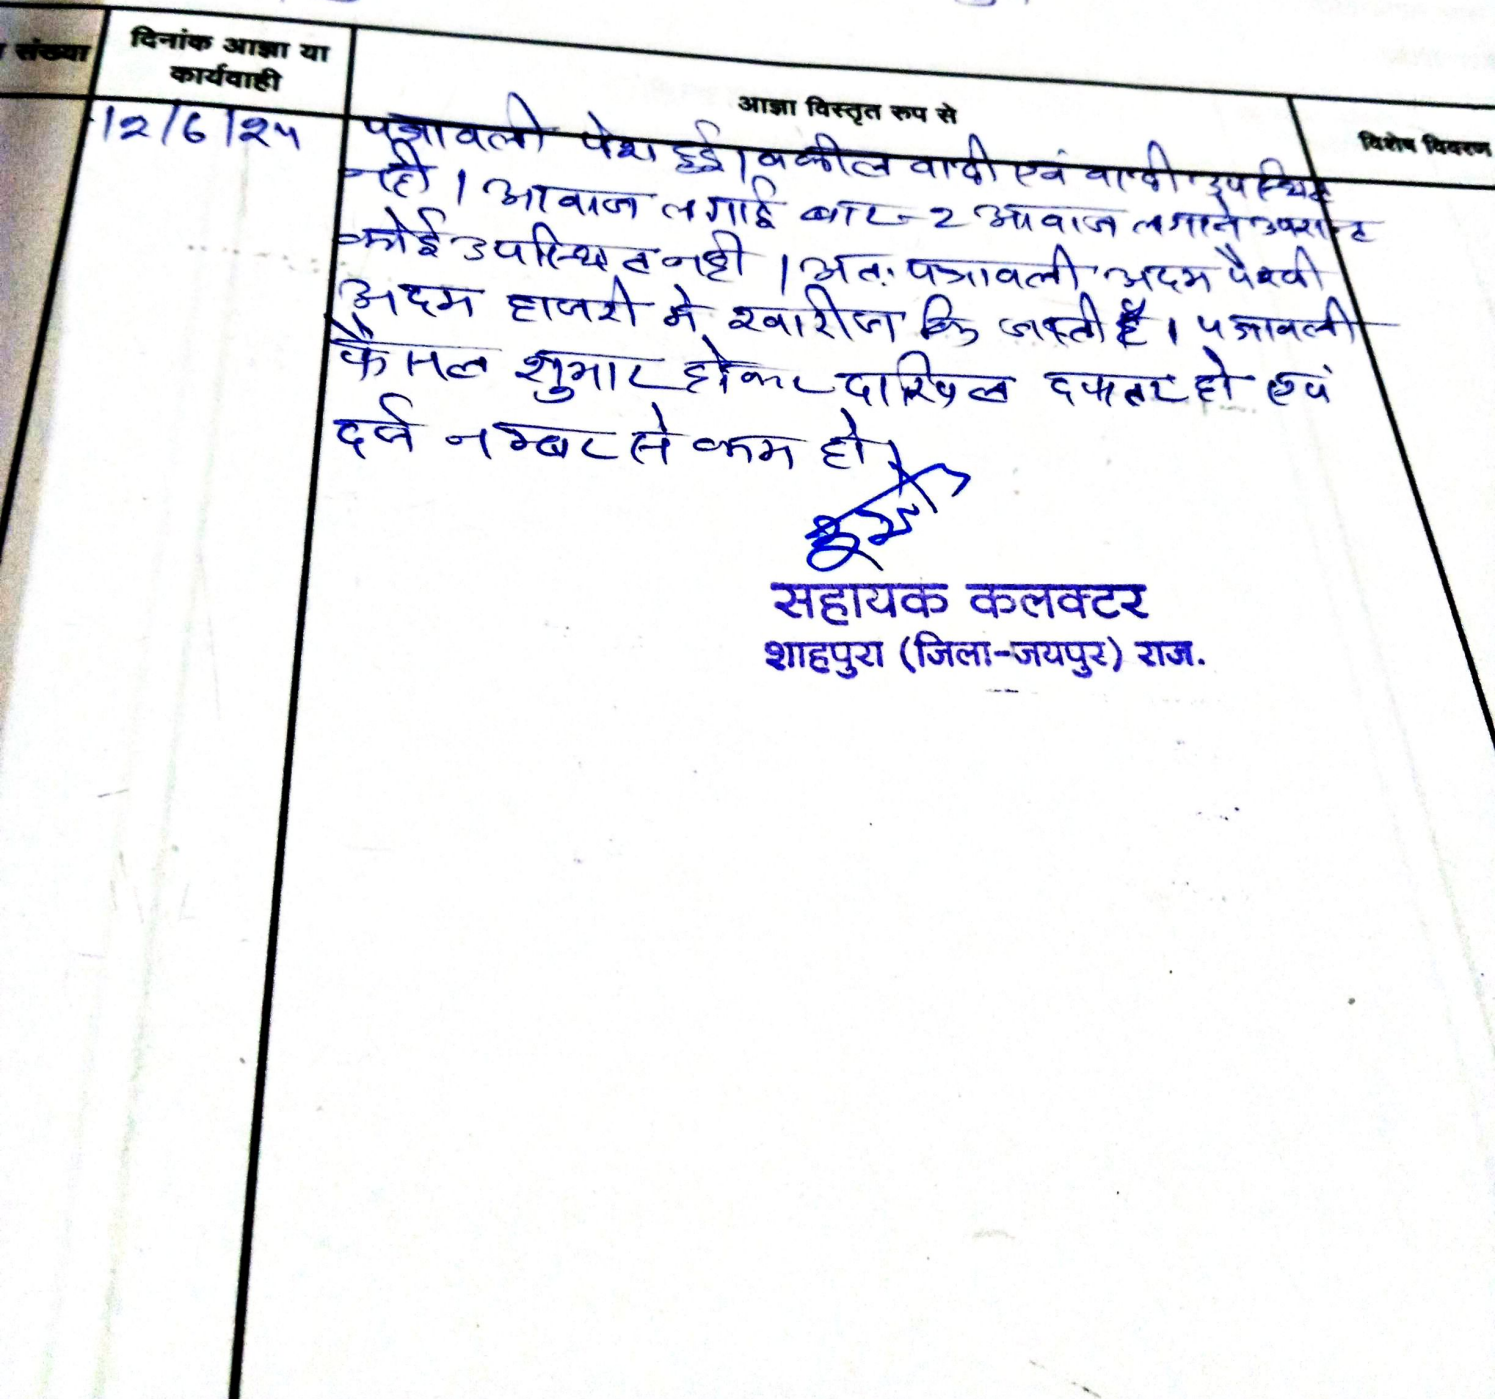 संख्या
दिनांक आज्ञा या
कार्यवाही
आज्ञा विस्तृत रुप से
विशेष विवरण
12/6/24
पत्रावली पेश हुई। वकील वादी एवं वादी उपस्थित
नही। आवाज लगाई बार-2 आवाज लगाने उपरान्त
कोई उपस्थित नही। अतः पत्रावली अदम पैरवी
अदम हाजरी मे खारीज कि जाती है। पत्रावली
फैसल शुमार होकर दाखिल दफ्तर हो एवं
दर्ज नम्बर से कम हो।
सहायक कलक्टर
शाहपुरा (जिला-जयपुर) राज.